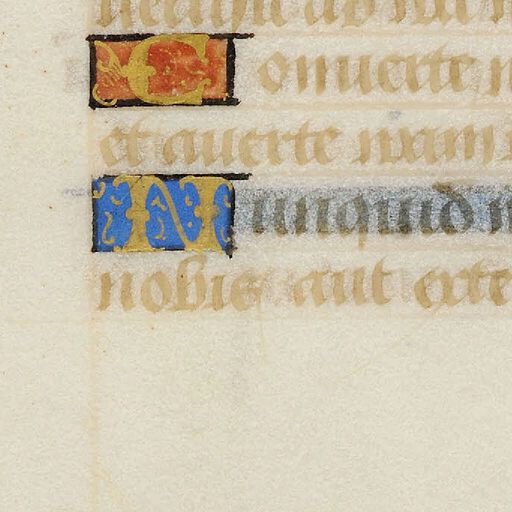 Conuerte n
et auerte iram
Nunquid
nobis aut exte